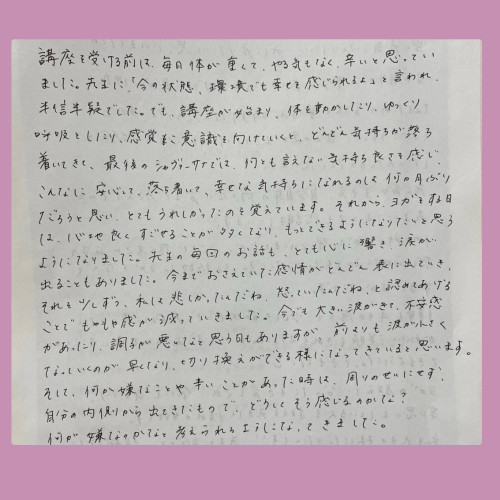 講座を受ける前は、毎日体が重くて、やる気もなく、辛いと思ってい
ました。先生に「今の状態、環境でも幸せを感じられるよ」と言われ、
半信半疑でした。でも、講座が始まり、体を動かしたり、ゆっくり
呼吸をしたり、感覚に意識を向けていくと、どんどん気持ちが落ち
着いてきて、最後のシャヴァーサナでは、何とも言えない気持ち良さを感じ、
こんなに安心して、落ち着いて、幸せな気持ちになれるのは何ヵ月ぶり
だろうと思い、とてもうれしかったのを覚えています。それから、ヨガをする日
は、心地良くすごせることが多くなり、もっとできるようになりたいと思う
ようになりました。先生の毎回のお話も、とても心に響き、涙が
出ることもありました。今までおさえていた感情がどんどん表に出てきて、
それを少しずつ、私は悲しかったんだね、怒っていたんだね、と認めてあげる
ことでモヤモヤ感が減っていきました。今でも大きい波がきて、不安感
があったり、調子が悪いなと思う日もありますが、前よりも波が小さく
なっていくのが早くなり、切り換えができる様になってきていると思います。
そして、何か嫌なことや辛いことがあった時は、周りのせいにせず、
自分の内側から出てきたもので、どうしてそう感じるのかな?
何が嫌なのかなと考えられるようになってきました。